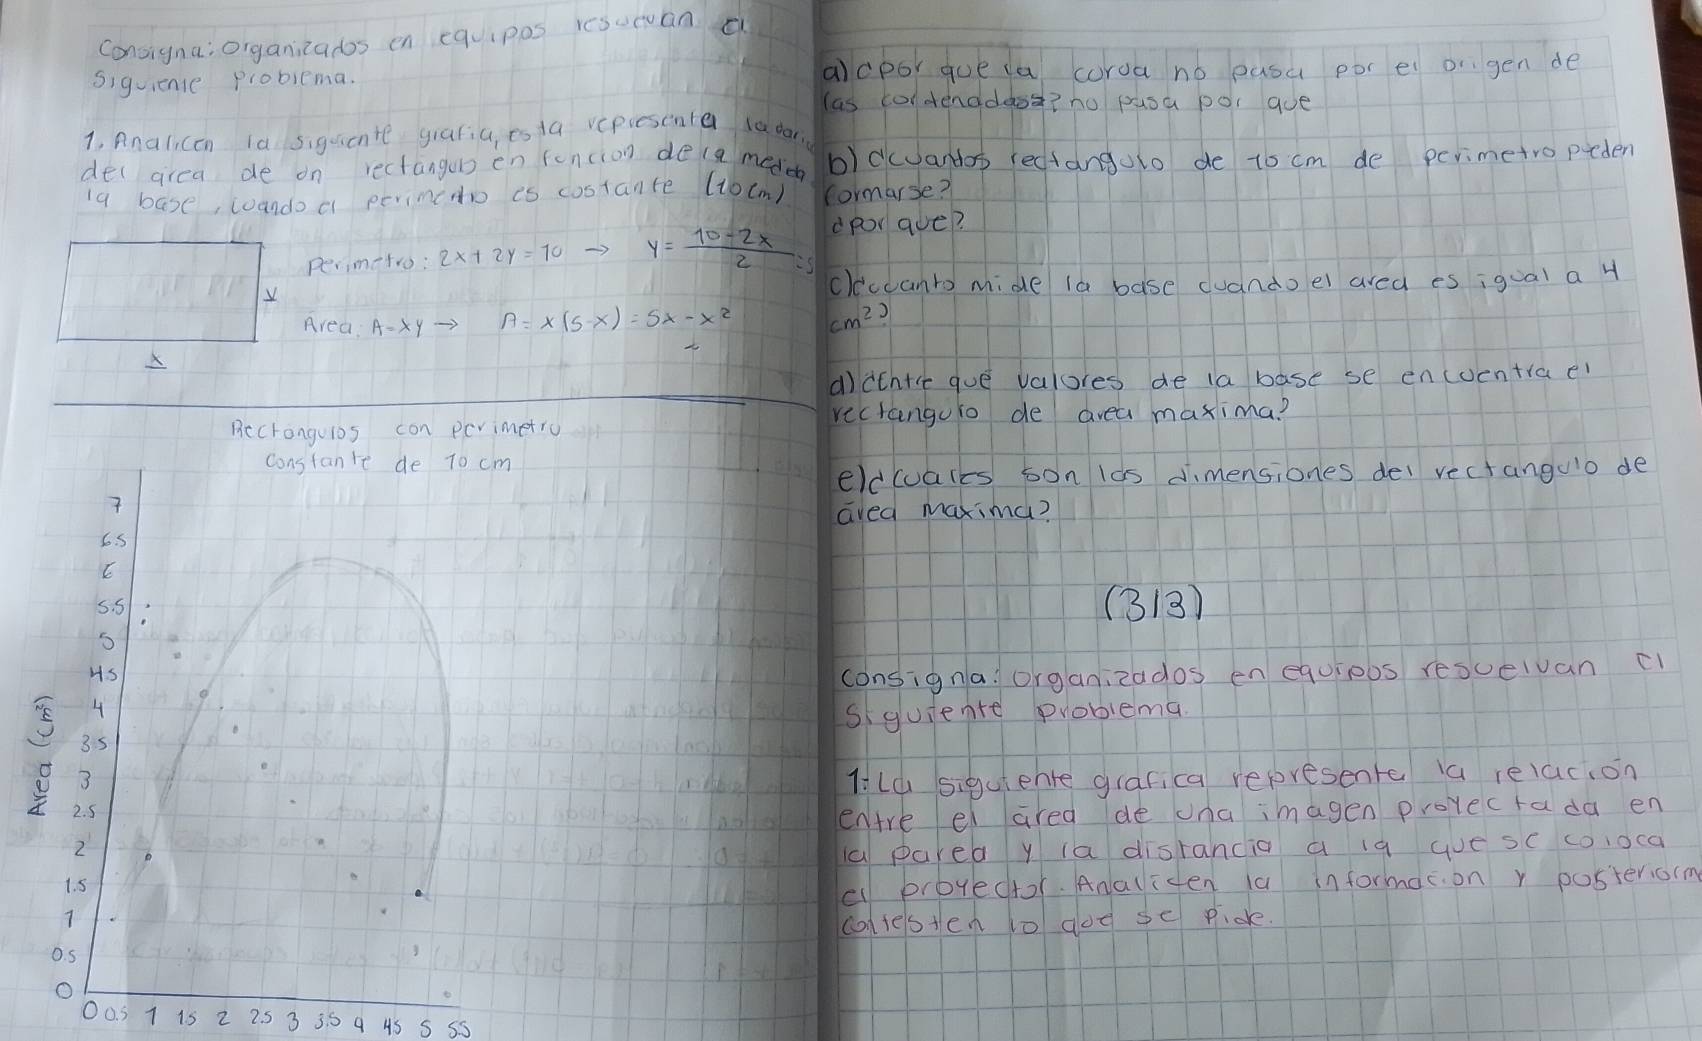 Consigna: Organizados en equipos resuevan el
siguiente problema.
1. Analicen la siguiente grafia, esta representa la
del area de un rectangulo en funcion de la medida
la base, cuando el perimetro es costante (10 cm)
Perimetro: 2x + 2y = 10 → y = 10-2x / 2 = 5
y
Area: A=xy → A = x(5-x) = 5x - x²
x
Rectangulos con perimetro
constante de 10 cm
Area (cm²)
7
6.5
6
5.5
5
4.5
4
3.5
3
2.5
2
1.5
1
0.5
0
0 0.5 1 1.5 2 2.5 3 3.5 4 4.5 5 5.5
a) ¿por que la curva no pasa por el origen de
las cordenadas? no pasa por que
b) ¿cuantos rectangulo de 10 cm de perimetro pueden
formarse?
¿por que?
c) ¿cuanto mide la base cuando el area es igual a 4
cm²?
d) ¿Entre qué valores de la base se encuentra el
rectangulo de area maxima?
e) ¿cuales son las dimensiones del rectangulo de
area maxima?
(313)
consigna: Organizados en equipos resuelvan el
siguiente problema.
1: La siguiente grafica representa la relacion
entre el área de una imagen proyectada en
la pared y la distancia a la que se coloca
el proyector. Analicen la informacion y posteriorm
contesten lo que se pide.